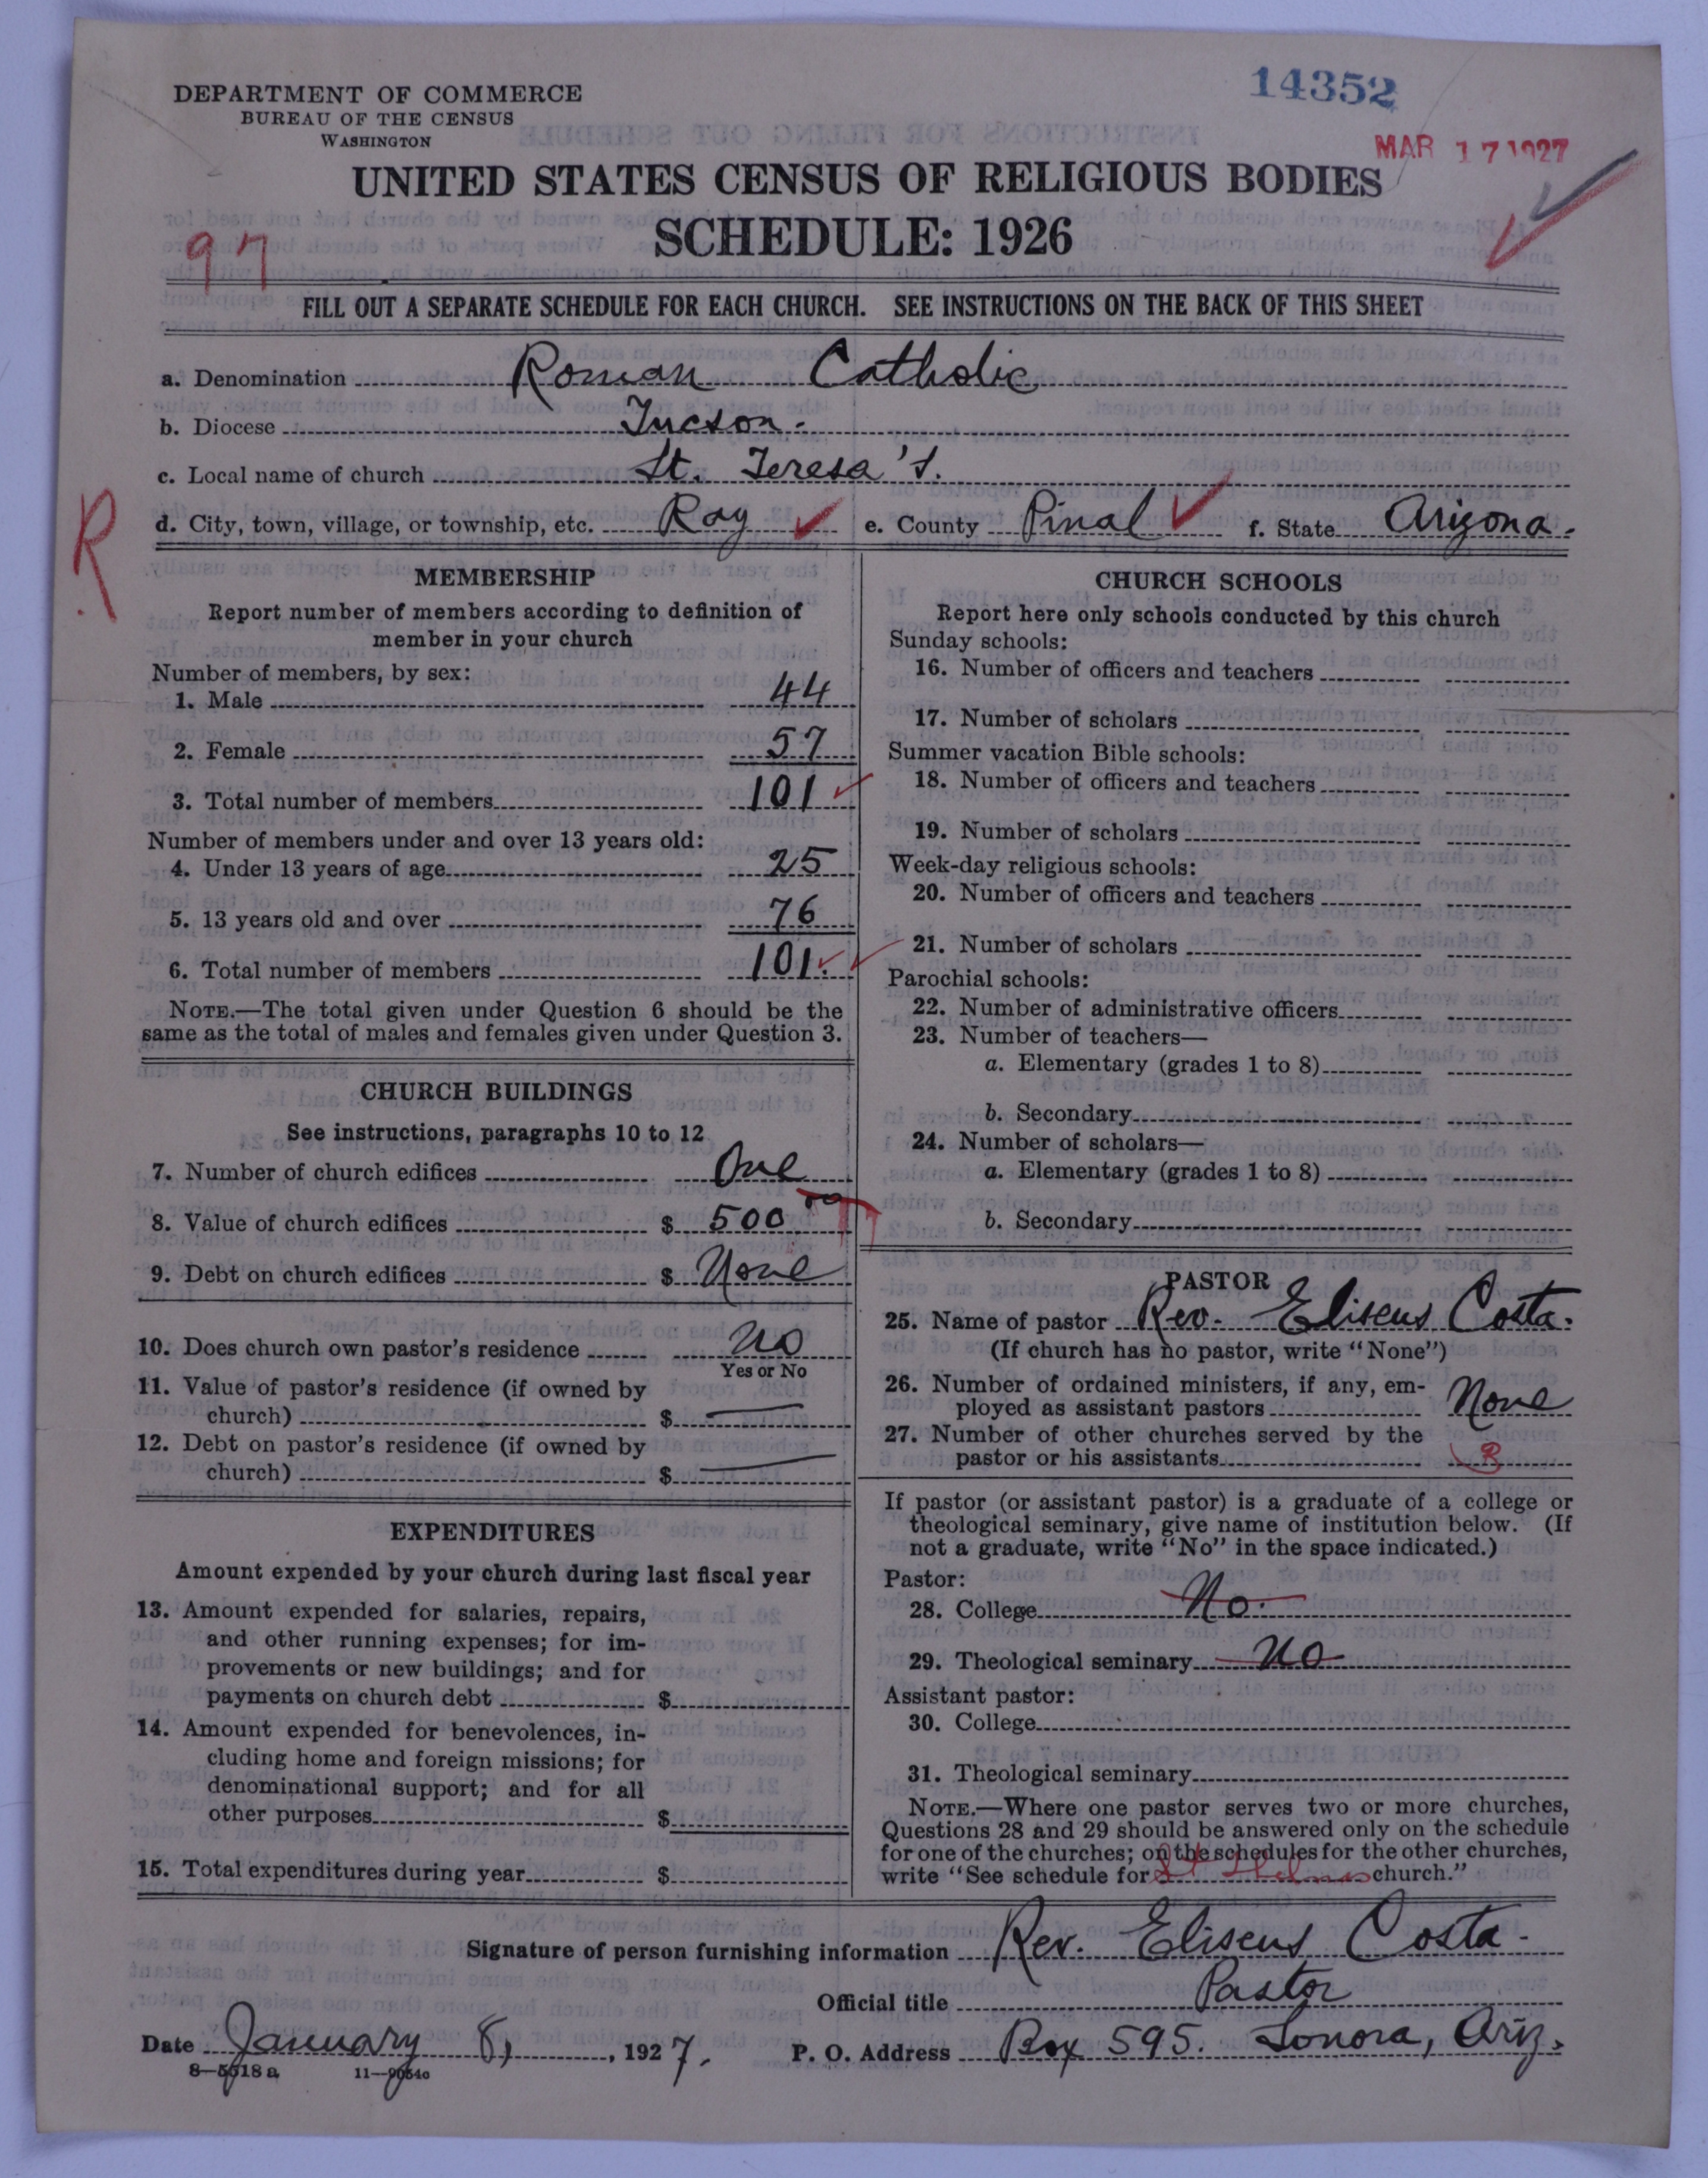 14352
DEPARTMENT OF COMMERCE
BUREAU OF THE CENSUS
WASHINGTON
MAR 17 1927
UNITED STATES CENSUS OF RELIGIOUS BODIES
SCHEDULE: 1926
97
FILL OUT A SEPARATE SCHEDULE FOR EACH CHURCH. SEE INSTRUCTIONS ON THE BACK OF THIS SHEET
a. Denomination Roman Catholic
b. Diocese Tucson.
c. Local name of church St. Teresa's.
R
d. City, town, village, or township, etc. Ray e. County Pinal f. State Arizona.
MEMBERSHIP
Report number of members according to definition of
member in your church
Number of members, by sex:
1. Male 44
2. Female 57
3. Total number of members 101
Number of members under and over 13 years old:
4. Under 13 years of age 25
5. 13 years old and over 76
6. Total number of members 101.
NOTE.—The total given under Question 6 should be the
same as the total of males and females given under Question 3.
CHURCH BUILDINGS
See instructions, paragraphs 10 to 12
7. Number of church edifices One
8. Value of church edifices $ 500 00
9. Debt on church edifices $ None
10. Does church own pastor's residence No
Yes or No
11. Value of pastor's residence (if owned by
church) $ —
12. Debt on pastor's residence (if owned by
church) $ —
EXPENDITURES
Amount expended by your church during last fiscal year
13. Amount expended for salaries, repairs,
and other running expenses; for im-
provements or new buildings; and for
payments on church debt $
14. Amount expended for benevolences, in-
cluding home and foreign missions; for
denominational support; and for all
other purposes $
15. Total expenditures during year $
CHURCH SCHOOLS
Report here only schools conducted by this church
Sunday schools:
16. Number of officers and teachers
17. Number of scholars
Summer vacation Bible schools:
18. Number of officers and teachers
19. Number of scholars
Week-day religious schools:
20. Number of officers and teachers
21. Number of scholars
Parochial schools:
22. Number of administrative officers
23. Number of teachers—
a. Elementary (grades 1 to 8)
b. Secondary
24. Number of scholars—
a. Elementary (grades 1 to 8)
b. Secondary
PASTOR
25. Name of pastor Rev. Eliseus Costa.
(If church has no pastor, write "None")
26. Number of ordained ministers, if any, em-
ployed as assistant pastors None
27. Number of other churches served by the
pastor or his assistants
If pastor (or assistant pastor) is a graduate of a college or
theological seminary, give name of institution below. (If
not a graduate, write "No" in the space indicated.)
Pastor:
28. College No.
29. Theological seminary No
Assistant pastor:
30. College
31. Theological seminary
NOTE.—Where one pastor serves two or more churches,
Questions 28 and 29 should be answered only on the schedule
for one of the churches; on the schedules for the other churches,
write "See schedule for St Helenas church."
Signature of person furnishing information Rev. Eliseus Costa.
Official title Pastor
Date January 8, , 1927. P. O. Address Box 595. Sonora, Ariz.
8—5618 a 11—9054c